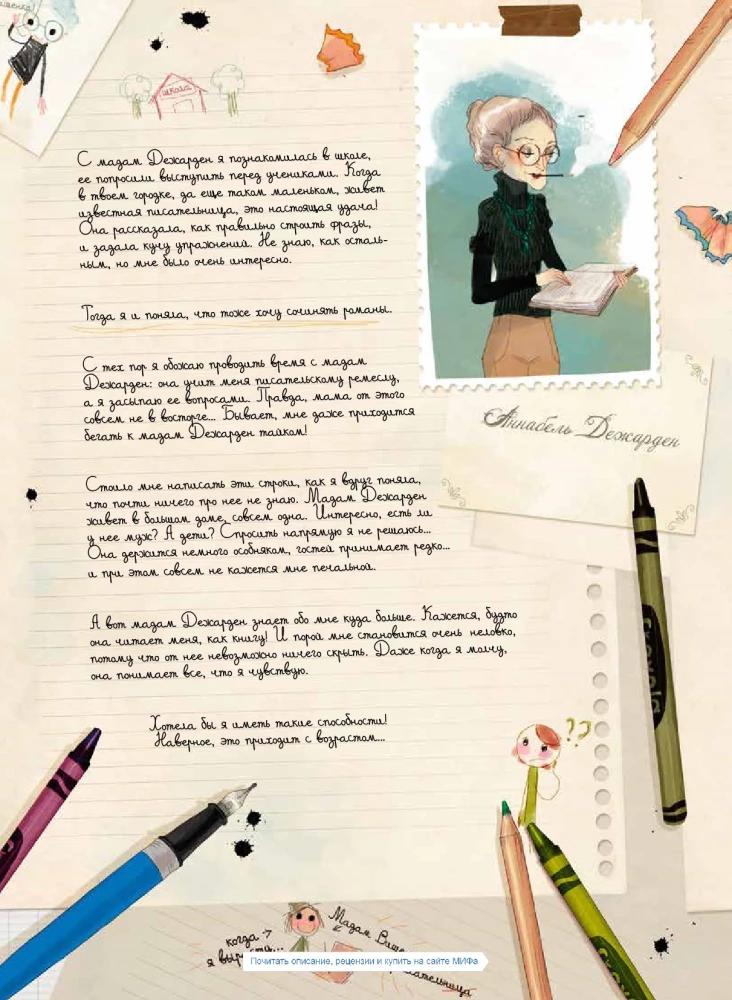 школа
С мадам Дежарден я познакомилась в школе,
ее попросили выступить перед учениками. Когда
в твоем городке, да еще таком маленьком, живет
известная писательница, это настоящая удача!
Она рассказала, как правильно строить фразы,
и задала кучу упражнений. Не знаю, как осталь-
ным, но мне было очень интересно.
Тогда я и поняла, что тоже хочу сочинять романы.
С тех пор я обожаю проводить время с мадам
Дежарден: она учит меня писательскому ремеслу,
а я засыпаю ее вопросами. Правда, мама от этого
совсем не в восторге... Бывает, мне даже приходится
бегать к мадам Дежарден тайком!
Аннабель Дежарден
Стоило мне написать эти строки, как я вдруг поняла,
что почти ничего про нее не знаю. Мадам Дежарден
живет в большом доме, совсем одна. Интересно, есть ли
у нее муж? А дети? Спросить напрямую я не решаюсь...
Она держится немного особняком, гостей принимает редко...
и при этом совсем не кажется мне печальной.
А вот мадам Дежарден знает обо мне куда больше. Кажется, будто
она читает меня, как книгу! И порой мне становится очень неловко,
потому что от нее невозможно ничего скрыть. Даже когда я молчу,
она понимает все, что я чувствую.
Хотела бы я иметь такие способности!
Наверное, это приходит с возрастом...
??
Crayola
когда
я
Мадам
Почитать описание, рецензии и купить на сайте МИФа